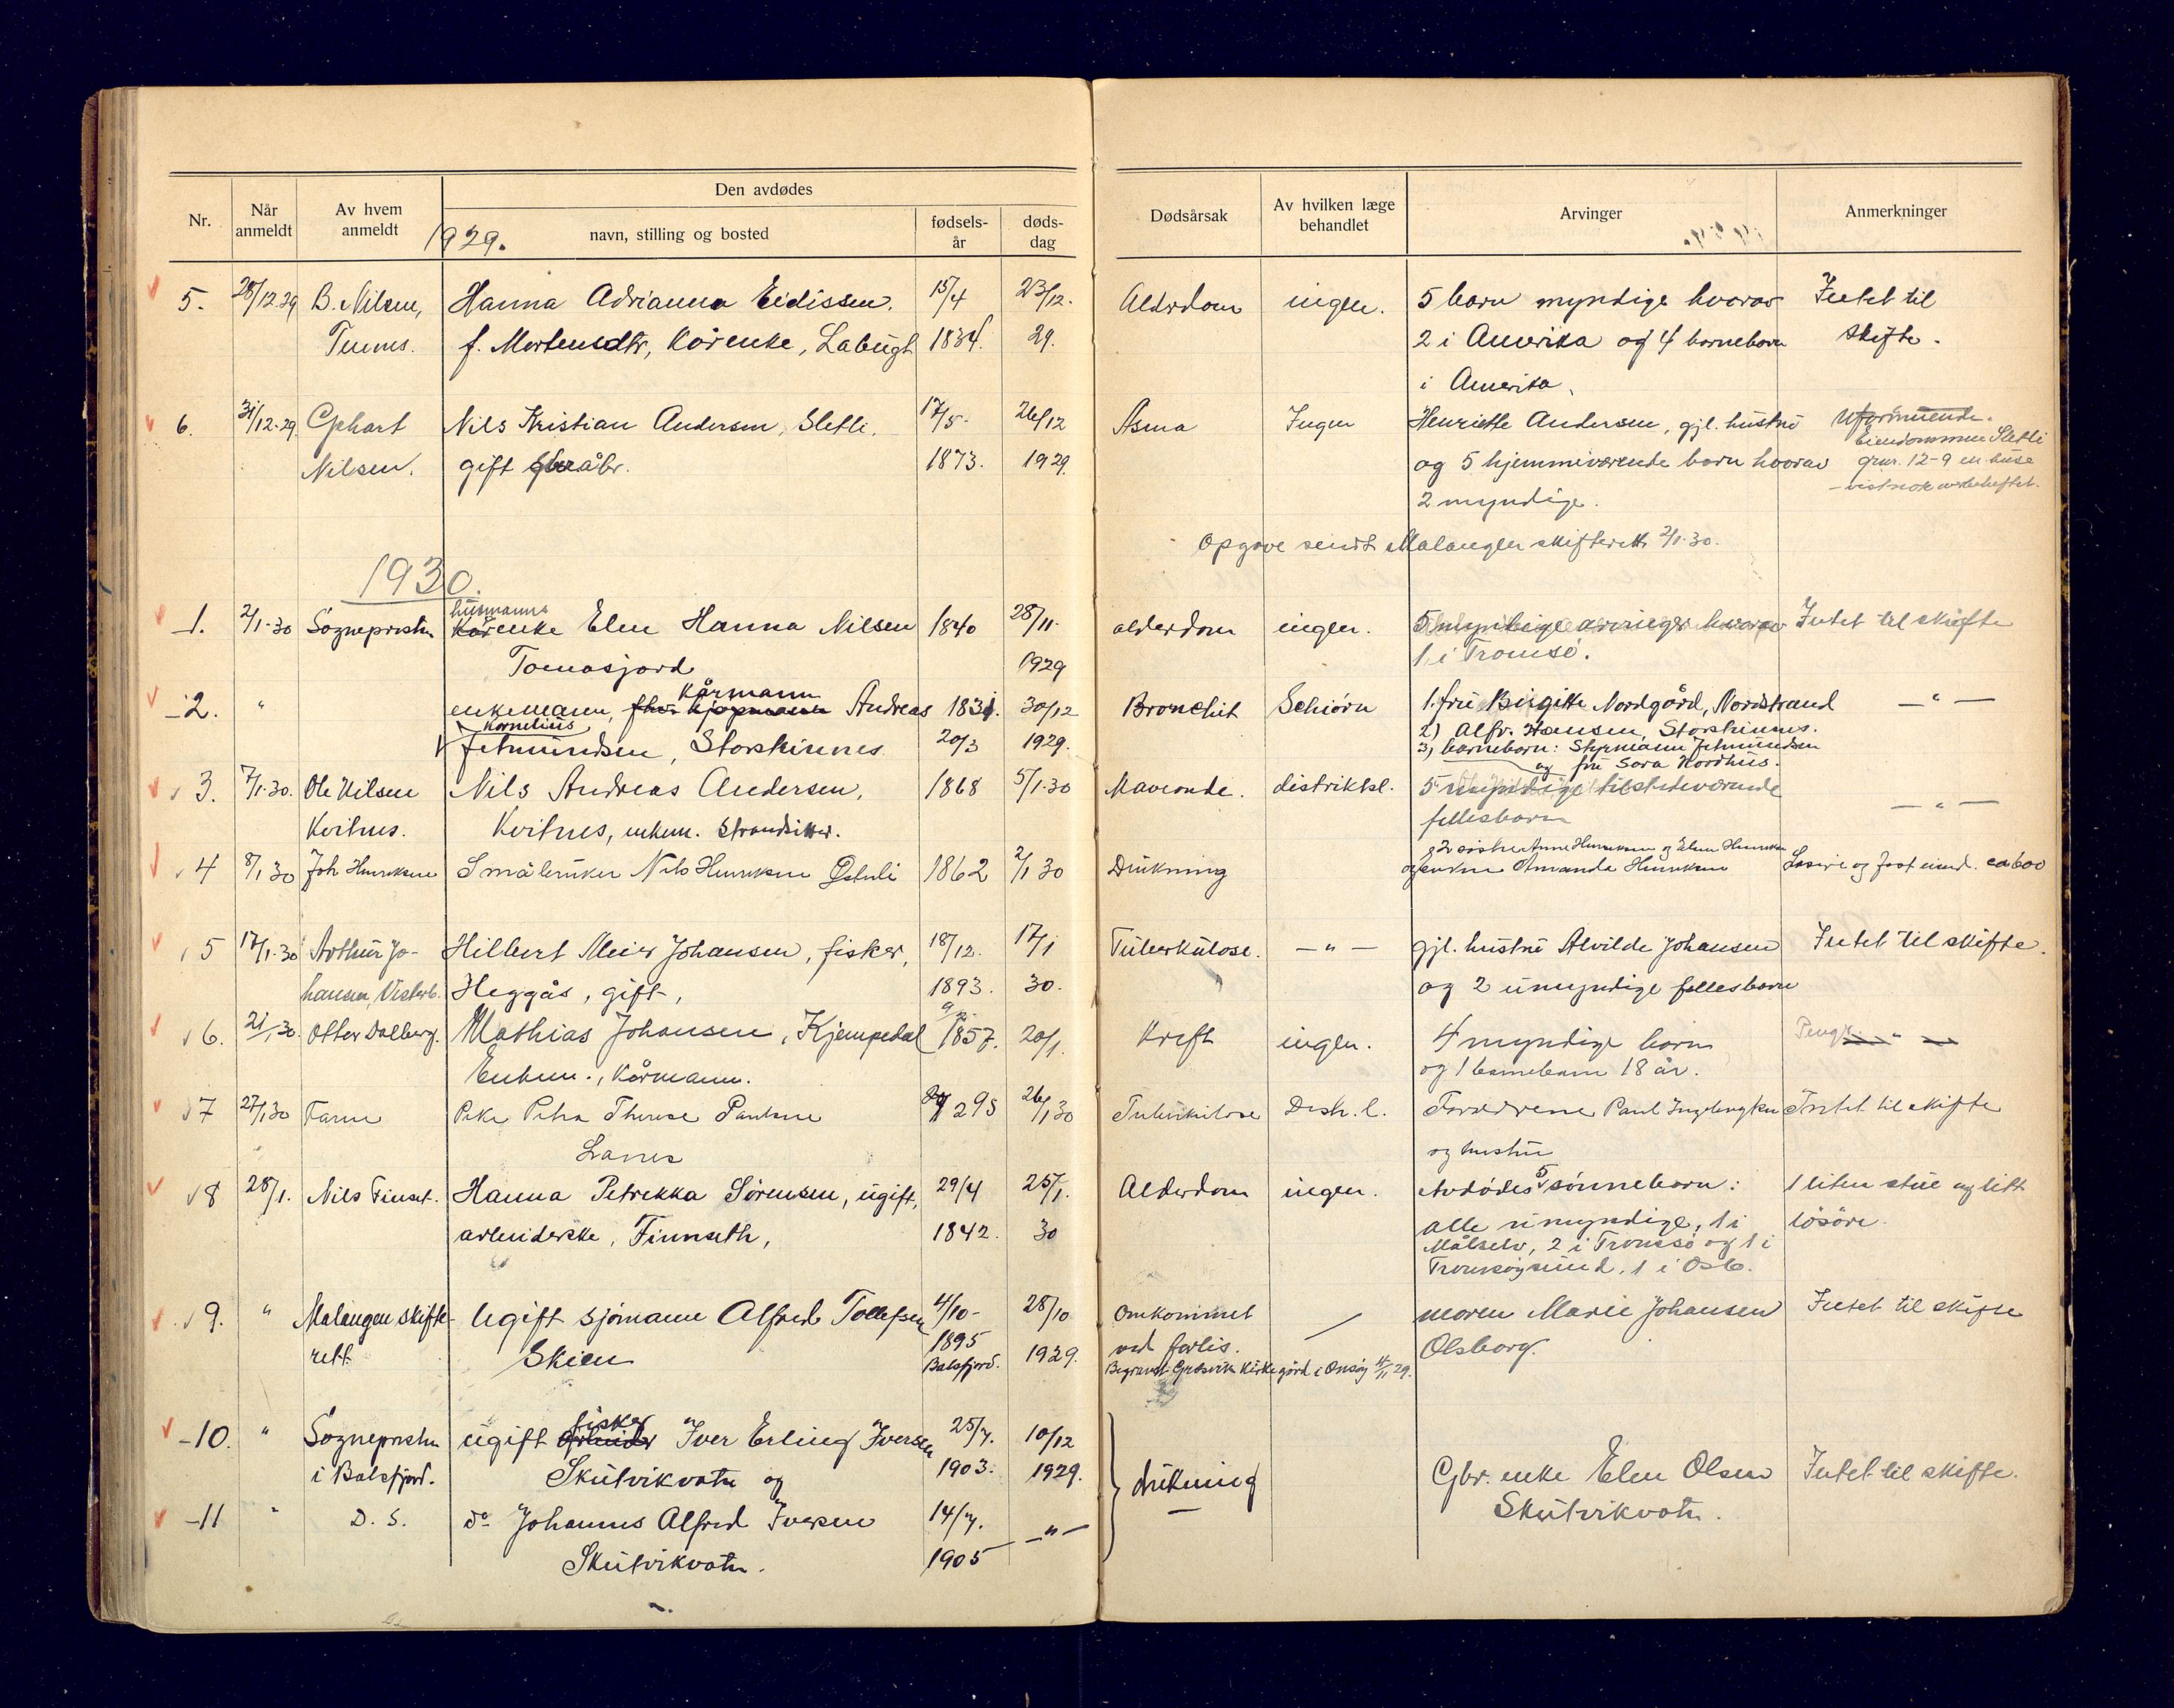 Nr. Når anmeldt Av hvem anmeldt Den avdødes navn, stilling og bosted fødsels-år døds-dag Dødsårsak Av hvilken læge behandlet Arvinger Anmerkninger
1929.
5. 28/12.29 B. Nilsen, Hanna Adrianna Eidissen. 15/4 23/12. Alderdom ingen. 5 barn myndige hvorav Intet til
f. Mortensdtr, Kårenke, Labugt 1834. 29. 2 i Amerika og 4 barnebarn skifte.
i Amerika.
6. 31/12-29 Gphart Nils Kristian Andersen, Sletli. 17/5. 26/12 Asma Ingen Henriette Andersen, gjl. hustru
Eiendommen Sletli
Nilsen. gift gbr. 1873. 1929. og 5 hjemmeværende barn hvorav grnr. 12-9 en huse
2 myndige. - vistnok
Opgave sendt Malangen skifterett 2/1.30.
1930.
husmanns
1. 2/1-30 Sognepresten Kårenke Elen Hanna Nilsen 1840 28/11. alderdom ingen. 5 myndige arvinger hvorav Intet til skifte
Tomasjord 1929 1 i Tromsø.
Kårmann
2. " enkemann, fhv. kjøpmann Andreas 1831. 30/12 Bronchit Schiørn 1. fru Birgitte Nordgård, Nordstrand — " —
Kornelius 2) Alfr. Hansen, Storskinnes.
Jetmundsen, Storskinnes 20/3 1929. 3) barnebarn: Styrmann Jetmundsen
og fru Sara Nordhus.
3. 7/1-30. Ole Nilsen Nils Andreas Andersen, 1868 5/1-30 Mavronde. distriktsl. 5 myndige tilstedeværende — " —
Kvitnes. Kvitnes, enkem. Strandsitter. fellesbarn
2 søstre Anne Henriksen og Elen Henriksen
4 8/1 30 Joh Henriksen Småbruker Nils Henriksen Østeli 1862 2/1 30 Drukning og enken Amanda Henriksen Løsøre og fast eiend. ca 600
5 17/1-30 Arthur Jo- Hilbert Meier Johansen, fisker, 18/12. 17/1 Tuberkulose. — " — gjl. hustru Alvilde Johansen Intet til skifte.
hansen, Vesterb. Heggås, gift, 1893. 30. og 2 umyndige fellesbarn
6. 21/1.30. Otter Dalberg. Mathias Johansen, Kjempedal 1857. 20/1. Kreft ingen. 4 myndige barn
Enkem., Kårmann. og 1 barnebarn 18 år.
7 27/1 30 Faren Pike Petra Therese Paulsen 95 26/1 30 Tuberkulose Distr. l. Foreldrene Paul Ingebrigtsen Intet til skifte
Lanes og hustru
8 28/1. Nils Finset. Hanna Petrikka Sørensen, ugift, 29/4 25/1. Alderdom ingen. Avdødes 5 sønnebarn: 1 liten stue og litt
arbeiderske, Finnseth, 1842. 30 alle umyndige, 1 i løsøre.
Målselv, 2 i Tromsø og 1 i
Tromsøysund, 1 i Oslo.
9. " Malangen skifte- Ugift sjømann Alfred Tollefsen 4/10- 28/10 Omkommet / moren Marie Johansen Intet til skifte
rett Skien 1895 1929. ved forlis. Olsborg.
Balsfjord. Begravet Gresvik Kirkegård i Onsøy 4/11 29.
fisker
10. " Sognepresten ugift arbeider Iver Erling Iversen 25/7. 10/12
i Balsfjord. Skutvikvatn og 1903. 1929. drukning Gbr. enke Elen Olsen Intet til skifte.
Skutvikvatn.
11 " D. S. do Johannes Alfred Iversen 14/7. — " —
Skutvikvatn. 1905